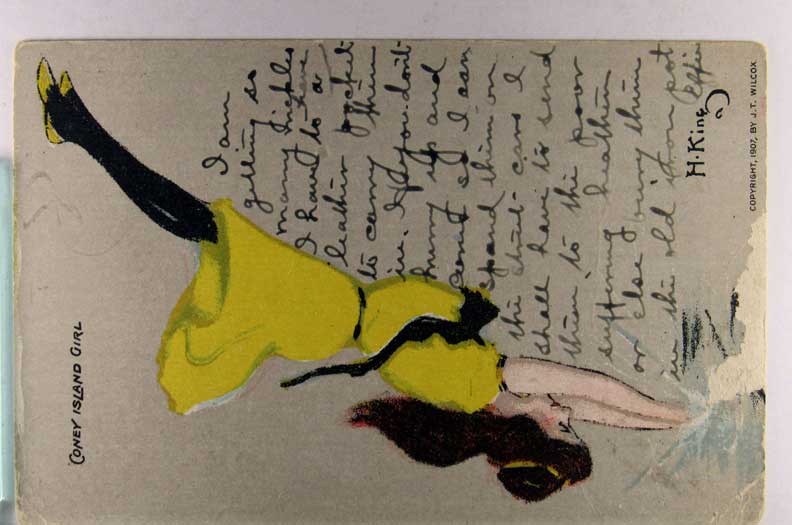 CONEY ISLAND GIRL
I am
getting so
many nickles
I have to have
leather pocket
to carry them
in. If you don't
hurry up and
come so I can
spend them on
the street cars I
shall have to send
them to the poor
suffering heathen
or else bury them
in the old iron pot
Effie
H. King
COPYRIGHT, 1907, BY J. T. WILCOX